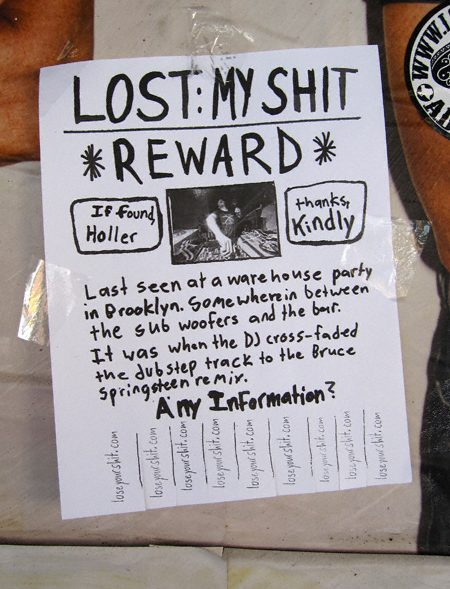 LOST: MY SHIT
*REWARD*
If found,
Holler
thanks,
Kindly
Last seen at a warehouse party
in Brooklyn. Somewhere in between
the sub woofers and the bar.
It was when the DJ cross-faded
the dubstep track to the Bruce
Springsteen remix.
Any Information?
loseyourshit.com
loseyourshit.com
loseyourshit.com
loseyourshit.com
loseyourshit.com
loseyourshit.com
loseyourshit.com
loseyourshit.com
loseyourshit.com